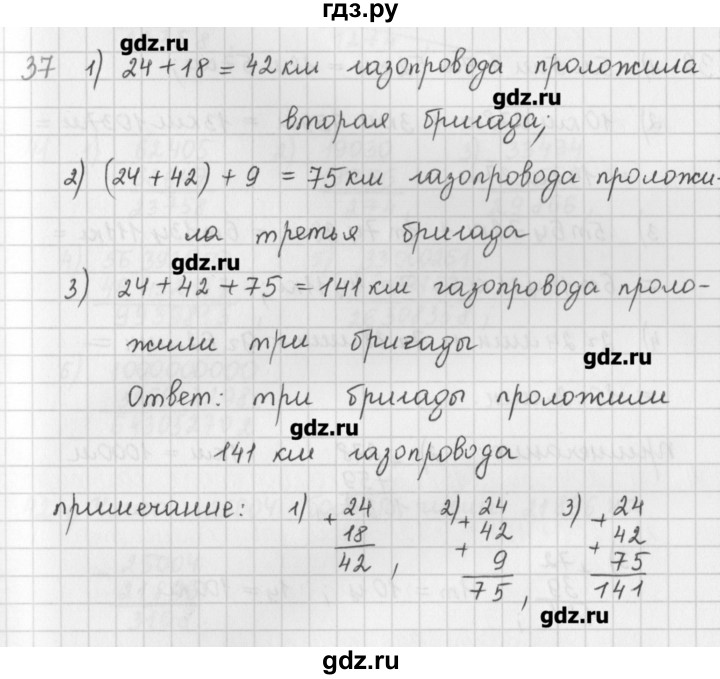 гдз.ру
gdz.ru
37 1) 24 + 18 = 42 км газопровода проложила
gdz.ru
вторая бригада;
2) (24 + 42) + 9 = 75 км газопровода проложи-
ла третья бригада
gdz.ru
3) 24 + 42 + 75 = 141 км газопровода проло-
жили три бригады
gdz.ru
Ответ: три бригады проложили
gdz.ru
141 км газопровода
примечание: 1) + 24 2) + 24 3) + 24
18 + 42 + 42
42, 9 75
75, 141
gdz.ru
gdz.ru